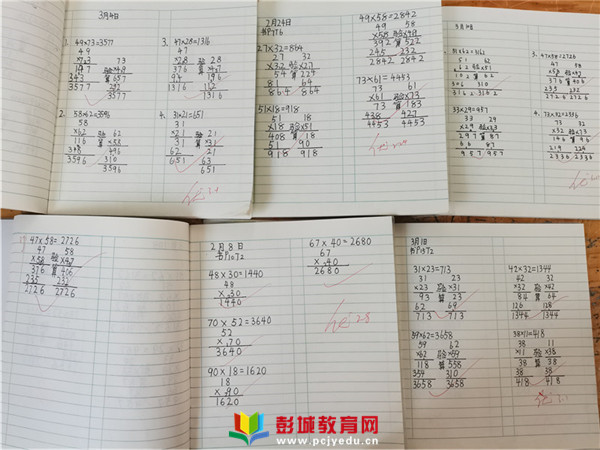 3月4日
1. 49×73=3577
49 73
×73 验×49
147 算 657
343 292
3577 3577
3. 47×28=1316
47
×28 验 28
376 算 ×47
94 196
1316 112
1316
2. 58×62=3596
58
×62 验 62
116 算 ×58
348 496
3596 310
3596
4. 31×21=651
31
×21 验 21
31 算 ×31
62 21
651 63
651
2月24日
书P76
27×32=864
27 32
×32 验×27
54 算 224
81 64
864 864
51×18=918
51 18
×18 验×51
408 算 18
51 90
918 918
49×58=2842
49 58
×58 验×49
392 算 522
245 232
2842 2842
73×61=4453
73 61
×61 验×73
73 算 183
438 427
4453 4453
33×29=957
33 29
×29 验×33
297 算 87
66 87
957 957
47×58=2726
47 58
×58 验×47
376 算 406
235 232
2726 2726
2月8日
书P1072
48×30=1440
48
×30
1440
70×52=3640
52
×70
3640
90×18=1620
18
×90
1620
67×40=2680
67
×40
2680
优 2.8
3月1日
31×23=713
31 23
×23 验×31
93 算 23
62 69
713 713
59×62=3658
59 62
×62 验×59
118 算 558
354 310
3658 3658
42×32=1344
42 32
×32 验×42
84 算 64
126 128
1344 1344
38×11=418
38 11
×11 验×38
38 算 88
38 33
418 418
彭城教育网
www.pcjyedu.cn